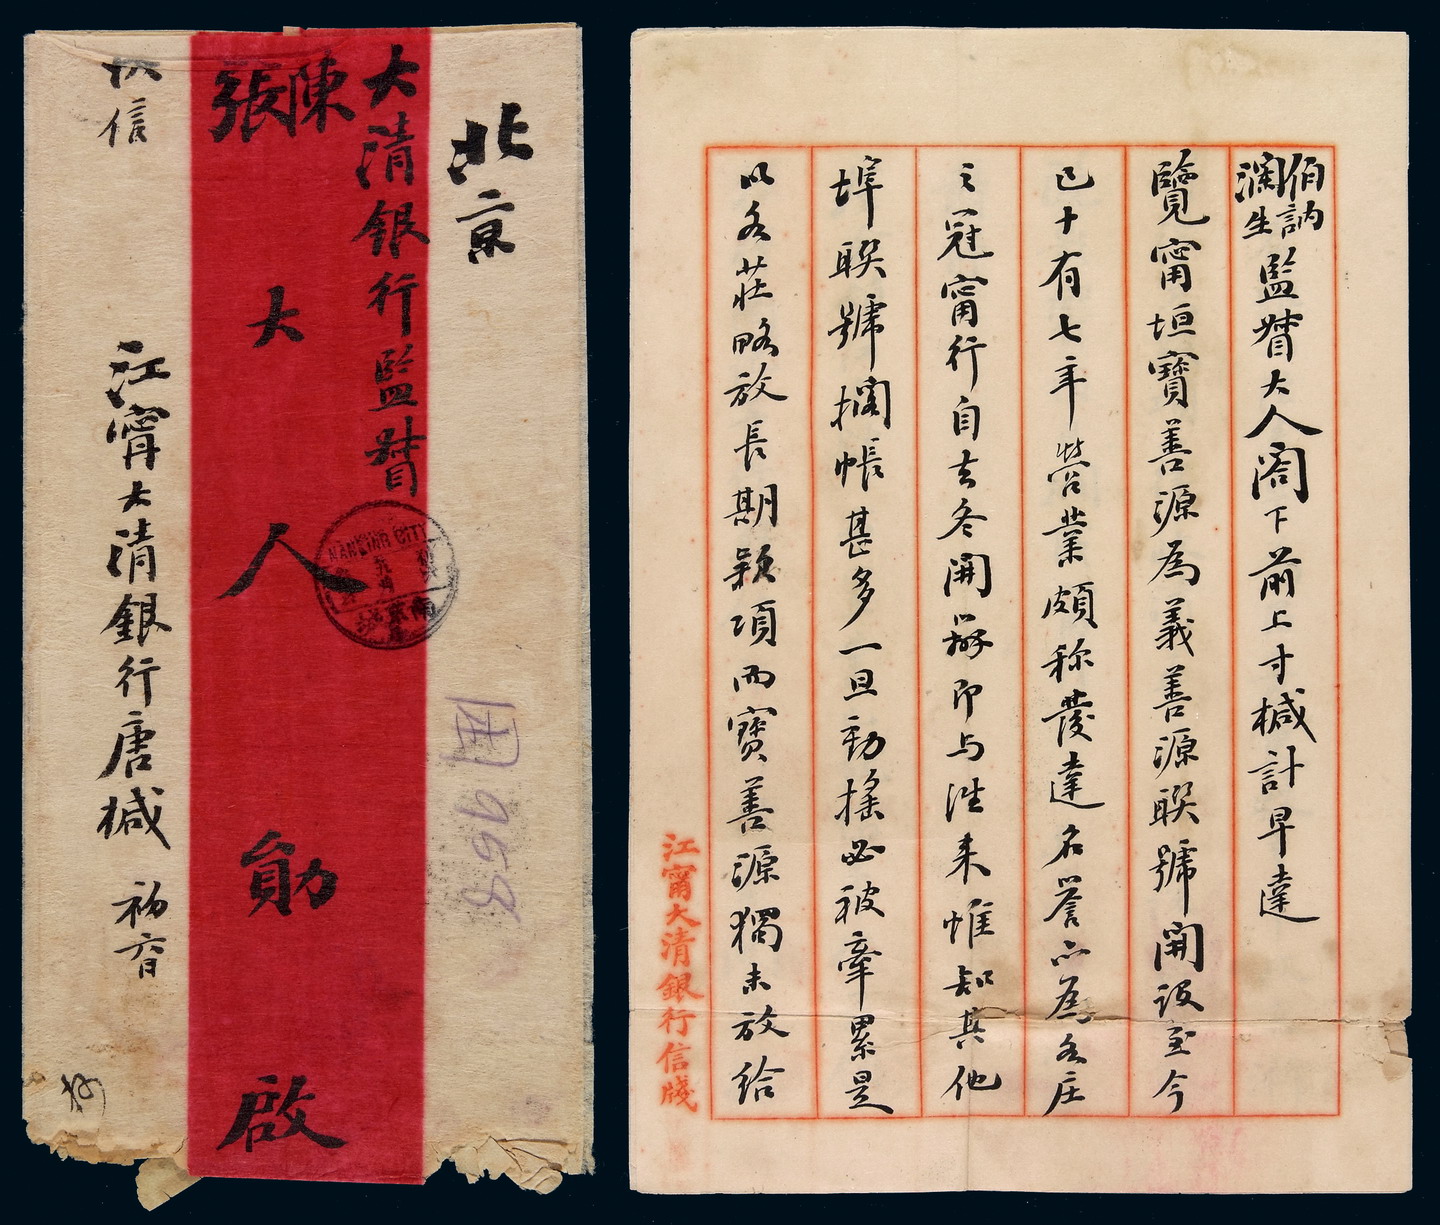 北京
大清銀行監督
陳
張
大人勛啟
快信
江甯大清銀行唐椷
初六日
NANKING CITY
南京
958
伯訥
瀾生
監督大人閣下前上寸椷計早達
覽甯垣寶善源為義善源聯號開設至今
已十有七年營業頗稱發達名譽亦為各庄
之冠甯行自去冬開辦即与往来惟知其他
埠聯號擱帳甚多一旦動搖必被牽累是
以各莊略放長期款項而寶善源獨未放給
江甯大清銀行信牋